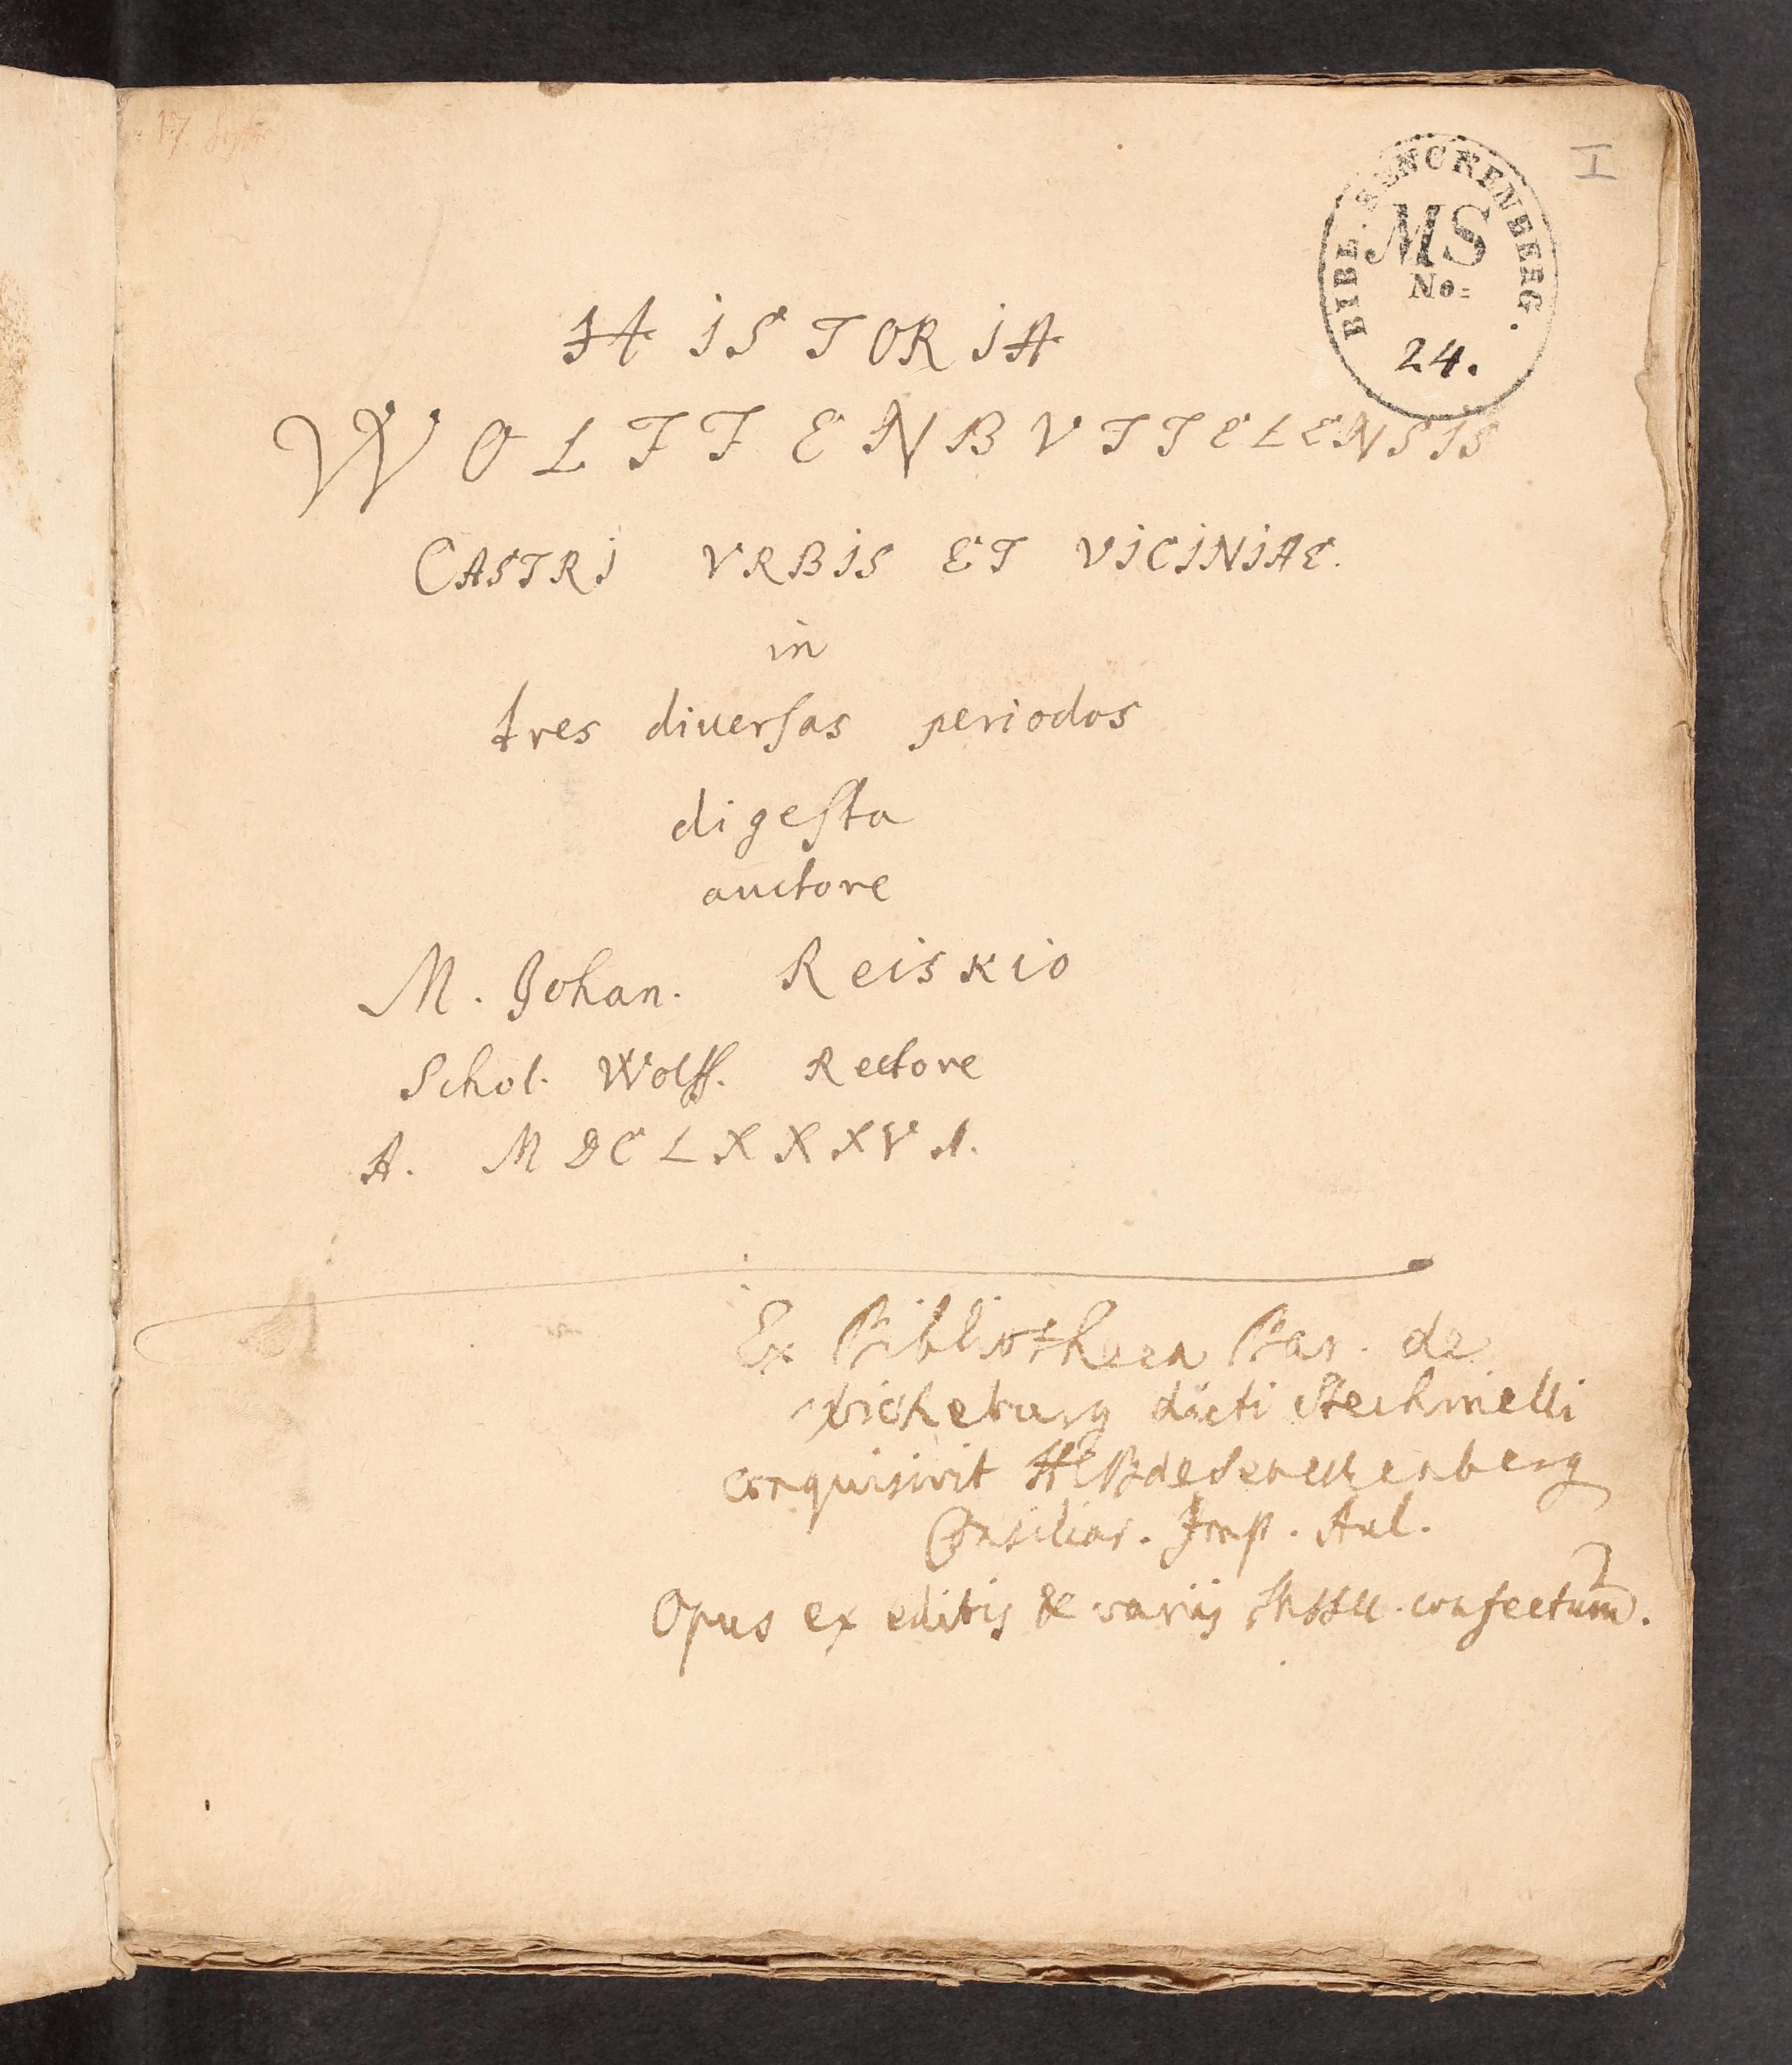 I
BIBL. SENCKENBERG.
MS
No:
24.
HISTORIA
WOLFFENBVTTELENSIS
CASTRI VRBIS ET VICINIAE.
in
tres diuerſas periodos
digeſta
auctore
M. Johan. Reiskio
Schol. Wolff. Rectore
A. MDCLXXXVI.
Ex Bibliotheca Bar. de
dicti Stechinelli
conquisivit HCB de Senckenberg
Consiliar. Imp. Aul.
Opus ex editis & variis confectum.